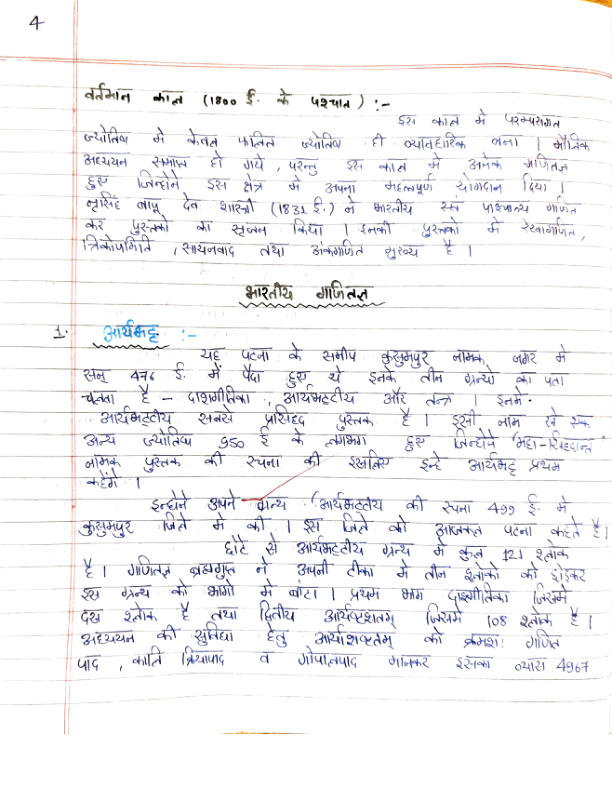 4
वर्तमान काल (1800 ई. के पश्चात) :-
इस काल मे परम्परागत
ज्योतिष मे केवल फलित ज्योतिष ही व्यावहारिक बना । मौलिक
अध्ययन समाप्त हो गये , परन्तु इस काल मे अनेक गणितज्ञ
हुए जिन्होने इस क्षेत्र मे अपना महत्वपूर्ण योगदान दिया ।
नृसिंह बापू देव शास्त्री (1831 ई.) ने भारतीय एवं पाश्चात्य गणित
कर पुस्तको का सृजन किया । इनकी पुस्तको मे रेखागणित ,
त्रिकोणमिति , सायनवाद तथा अंकगणित मुख्य है ।
भारतीय गणितज्ञ
1. आर्यभट्ट :-
यह पटना के समीप कुसुमपुर नामक नगर मे
सन् 476 ई. में पैदा हुए थे इनके तीन ग्रन्थो का पता
चलता है - दाशगीतिका , आर्यभट्टीय और तन्त्र । इनमे
आर्यभट्टीय सबसे प्रसिद्द पुस्तक है । इसी नाम से एक
अन्य ज्योतिष 950 ई के लगभग हुए जिन्होने 'महा-सिद्दान्त'
नामक पुस्तक की रचना की इसलिए इन्हे आर्यभट्ट प्रथम
कहेंगे ।
इन्होने अपने ग्रन्थ 'आर्यभट्टीय की रचना 499 ई. मे
कुसुमपुर जिले मे की । इस जिले को आजकल पटना कहते है।
छोटे से आर्यभट्टीय ग्रन्थ मे कुल 121 श्लोक
है । गणितज्ञ ब्रह्मगुप्त ने अपनी टीका मे तीन श्लोको को छोड़कर
इस ग्रन्थ को भागो मे बांटा । प्रथम भाग दाशगीतिका जिसमे
दस श्लोक है तथा द्वितीय जिसमे 108 श्लोक है ।
अध्ययन की सुविधा हेतु को क्रमशः गणित
पाद , क्रियापाद व गोपालपाद मानकर इसका व्यास 4967